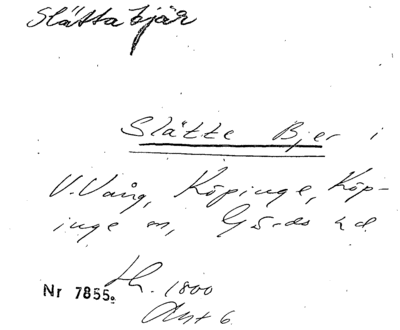 Slättabjär
Slätte Bjer i
V. Vång, Köpinge, Köp-
inge sn, Gärds hd.
Nr 7855.
1800
6